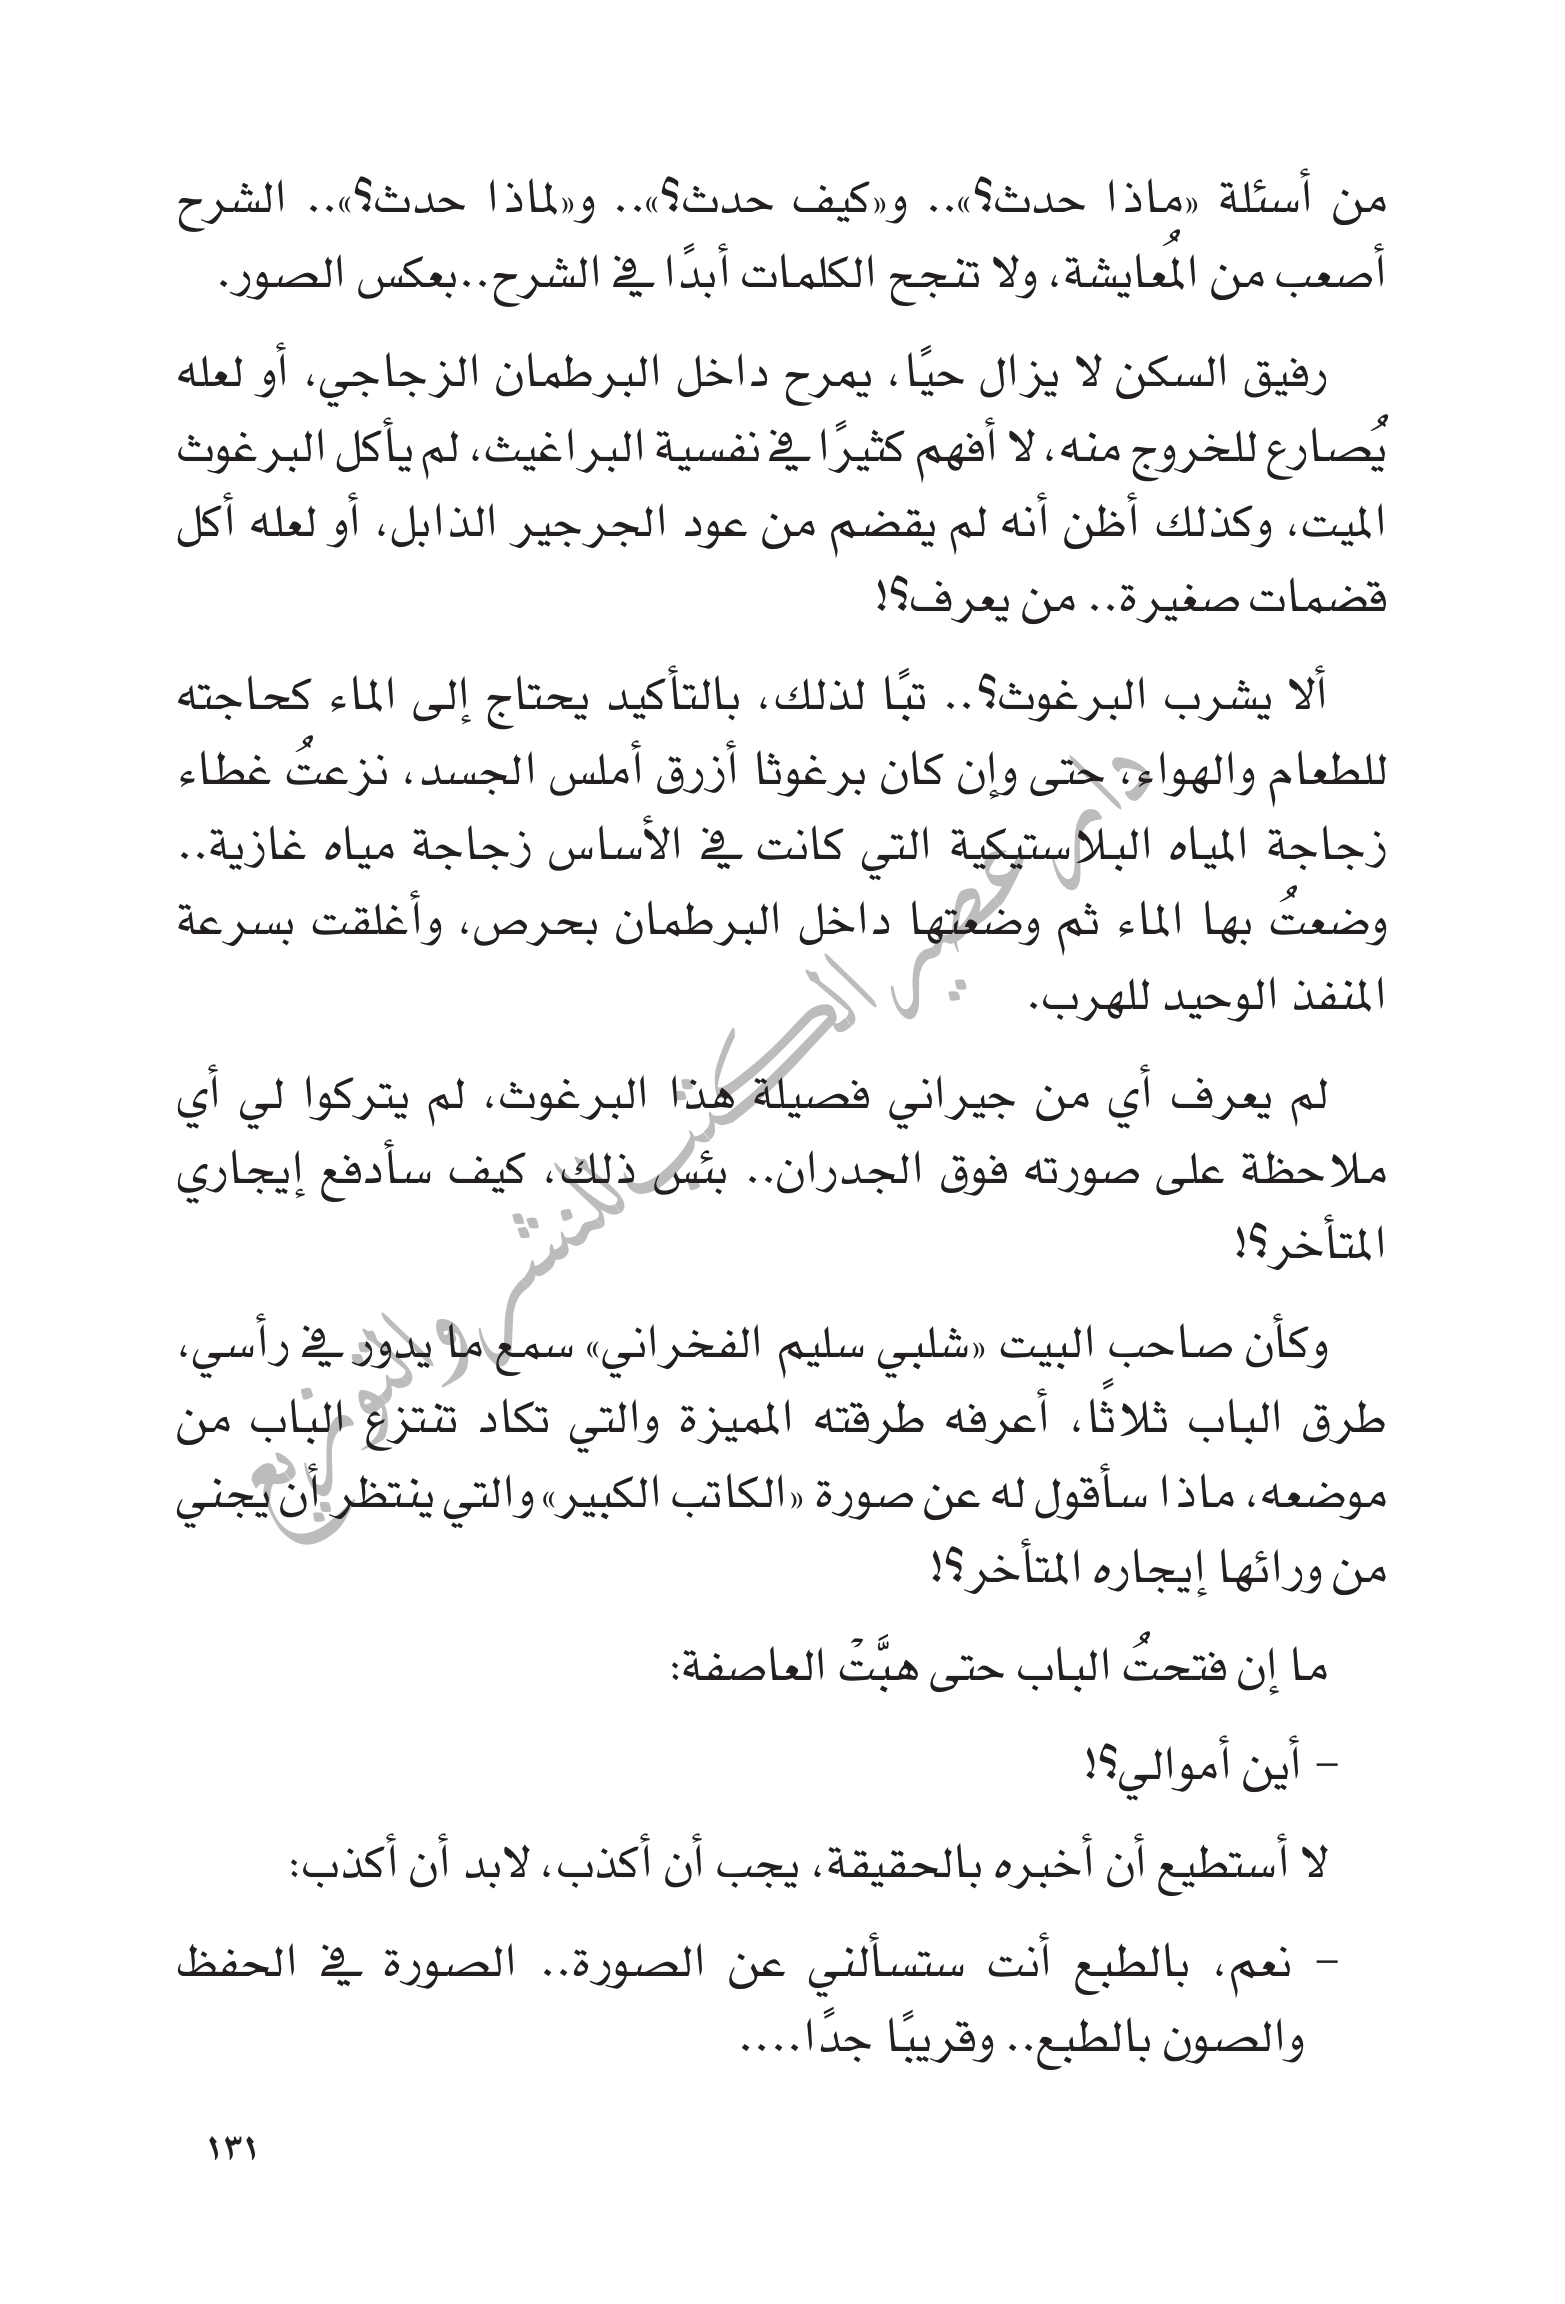 من أسئلة «ماذا حدث؟».. و«كيف حدث؟».. و«لماذا حدث؟».. الشرح
أصعب من المُعايشة، ولا تنجح الكلمات أبدًا في الشرح..بعكس الصور.
رفيق السكن لا يزال حيًا، يمرح داخل البرطمان الزجاجي، أو لعله
يُصارع للخروج منه، لا أفهم كثيرًا في نفسية البراغيث، لم يأكل البرغوث
الميت، وكذلك أظن أنه لم يقضم من عود الجرجير الذابل، أو لعله أكل
قضمات صغيرة.. من يعرف؟!
ألا يشرب البرغوث؟.. تبًا لذلك، بالتأكيد يحتاج إلى الماء كحاجته
للطعام والهواء، حتى وإن كان برغوثا أزرق أملس الجسد، نزعتُ غطاء
زجاجة المياه البلاستيكية التي كانت في الأساس زجاجة مياه غازية..
وضعتُ بها الماء ثم وضعتها داخل البرطمان بحرص، وأغلقت بسرعة
المنفذ الوحيد للهرب.
لم يعرف أي من جيراني فصيلة هذا البرغوث، لم يتركوا لي أي
ملاحظة على صورته فوق الجدران.. بئس ذلك، كيف سأدفع إيجاري
المتأخر؟!
وكأن صاحب البيت «شلبي سليم الفخراني» سمع ما يدور في رأسي،
طرق الباب ثلاثًا، أعرفه طرقته المميزة والتي تكاد تنتزع الباب من
موضعه، ماذا سأقول له عن صورة «الكاتب الكبير» والتي ينتظر أن يجني
من ورائها إيجاره المتأخر؟!
ما إن فتحتُ الباب حتى هبَّتْ العاصفة:
– أين أموالي؟!
لا أستطيع أن أخبره بالحقيقة، يجب أن أكذب، لابد أن أكذب:
– نعم، بالطبع أنت ستسألني عن الصورة.. الصورة في الحفظ
والصون بالطبع.. وقريبًا جدًا....
١٣١
دار عصير الكتب للنشر والتوزيع